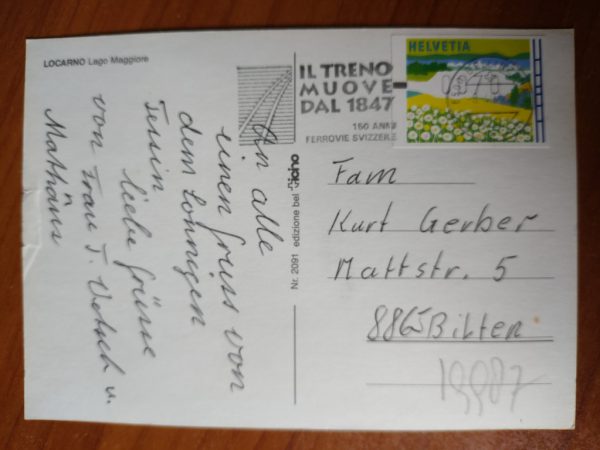 LOCARNO Lago Maggiore
An alle
einen gruss von
dem Sohnigen
Tessin
liebe grüsse
von Frau T. Vetsch u.
Mathäus
Nr. 2091 edizione bei
IL TRENO
MUOVE
DAL 1847
150 ANNI
FERROVIE SVIZZERE
HELVETIA
0070
Fam
Kurt Gerber
Mattstr. 5
8865 Bilten